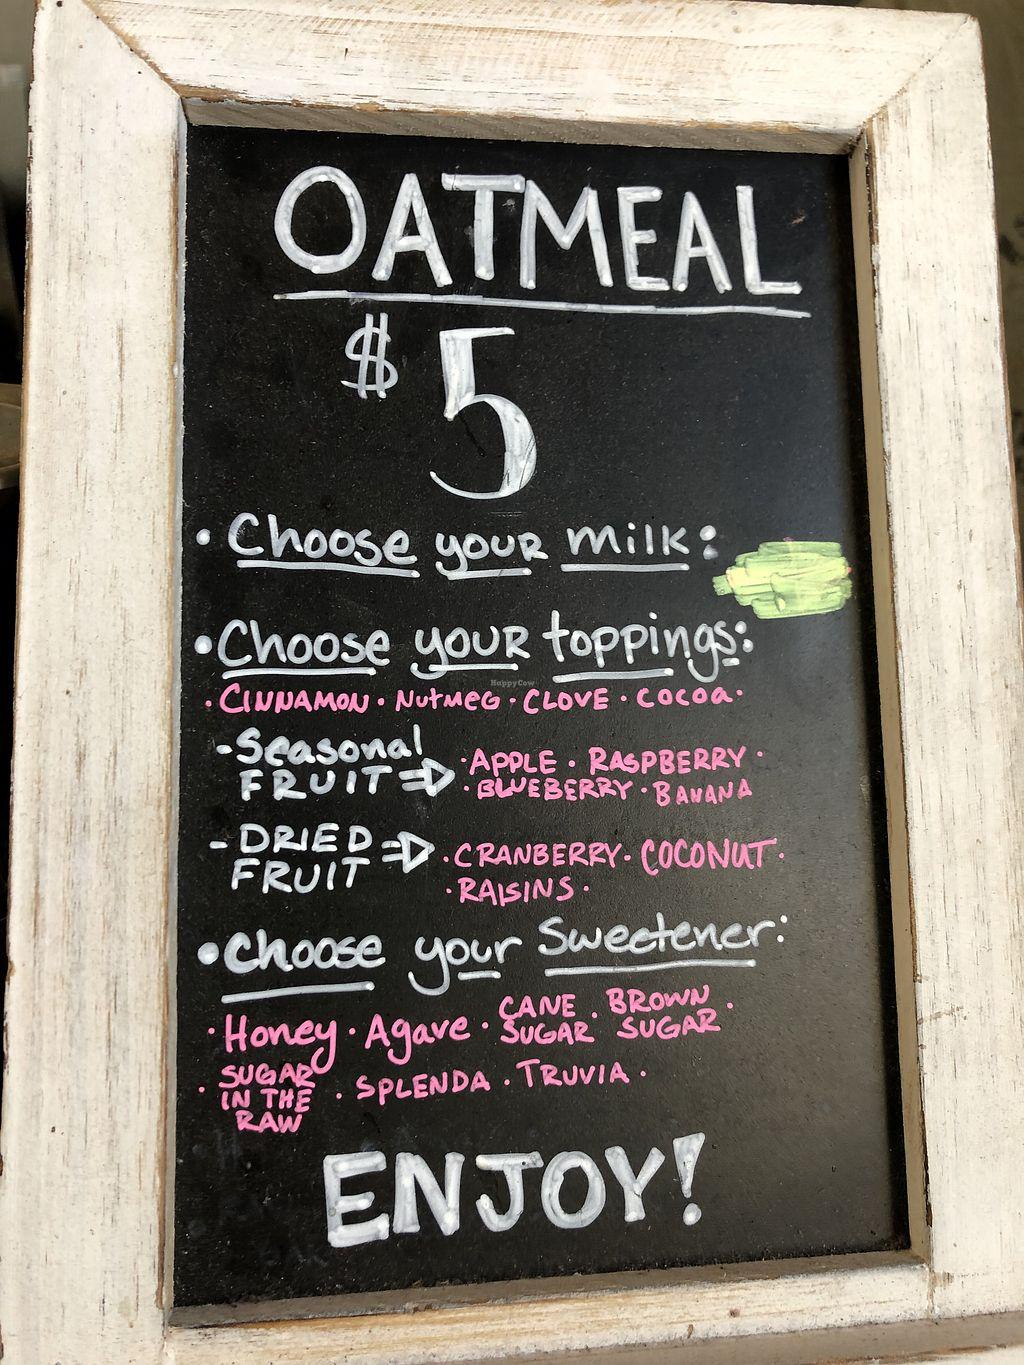 OATMEAL
$5
• Choose your milk:
• Choose your toppings:
HappyCow
• CINNAMON • NutmeG • CLOVE • cocoa •
- Seasonal FRUIT ⇒ • APPLE • RASPBERRY •
• BLUEBERRY • BANANA
- DRIED FRUIT ⇒ • CRANBERRY • COCONUT •
• RAISINS •
• Choose your Sweetener:
• Honey • Agave • CANE SUGAR • BROWN SUGAR •
• SUGAR IN THE RAW • SPLENDA • TRUVIA •
ENJOY!